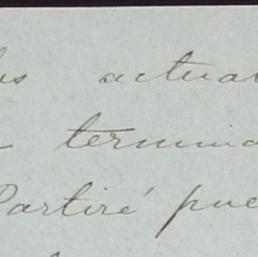 actua
termina
Partiré pue